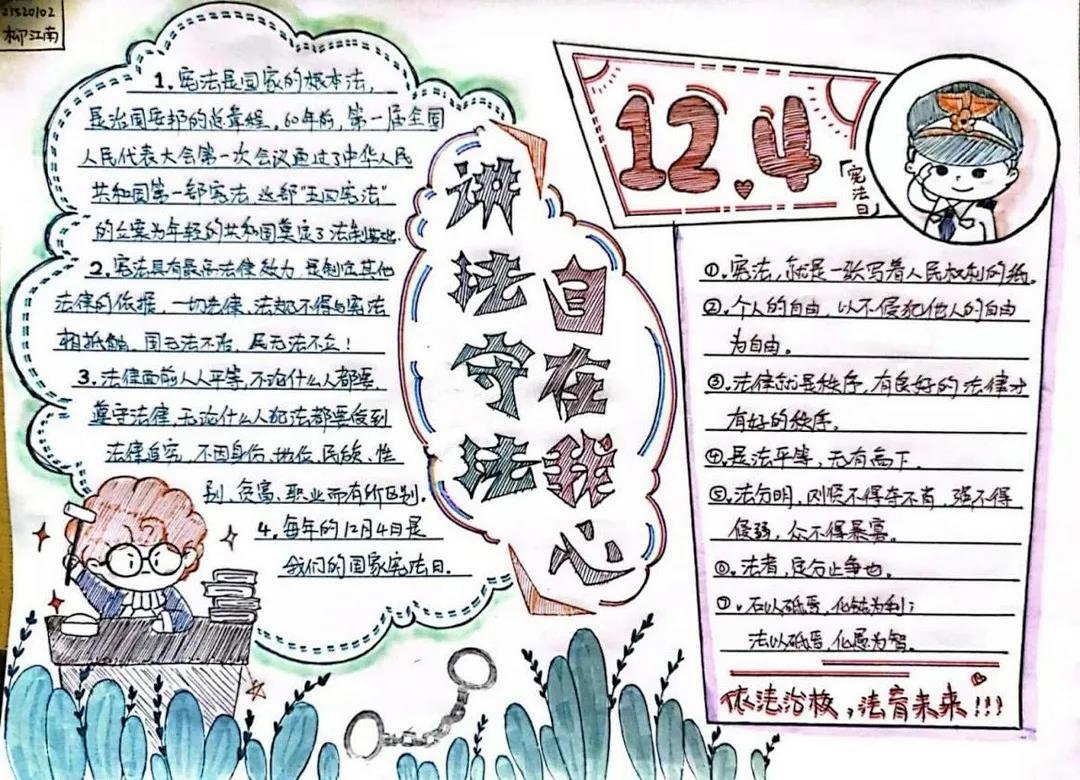 21520102
柳江南
1. 宪法是国家的根本法,
是治国安邦的总章程。60年前,第一届全国
人民代表大会第一次会议通过了中华人民
共和国第一部宪法,这部"五四宪法"
的立案为年轻的共和国奠定了法制基础.
2. 宪法具有最高法律效力,是制定其他
法律的依据,一切法律、法规不得与宪法
相抵触。国无法不治,民无法不立!
3. 法律面前人人平等,不论什么人都要
遵守法律,无论什么人犯法都要受到
法律追究,不因身份、地位、民族、性
别、贫富、职业而有所区别.
4. 每年的12月4日是
我们的国家宪法日.
讲法守法
自在我心
12.4
「宪法日」
①. 宪法,就是一张写着人民权利的纸。
②. 个人的自由,以不侵犯他人的自由
为自由。
③. 法律就是秩序,有良好的法律才
有好的秩序。
④. 是法平等,无有高下.
⑤. 法分明,则贤不得夺不肖,强不得
侵弱,众不得暴寡。
⑥. 法者,定分止争也.
⑦. 石以砥焉,化钝为利;
法以砥焉,化愚为智。
依法治校,法育未来!!!